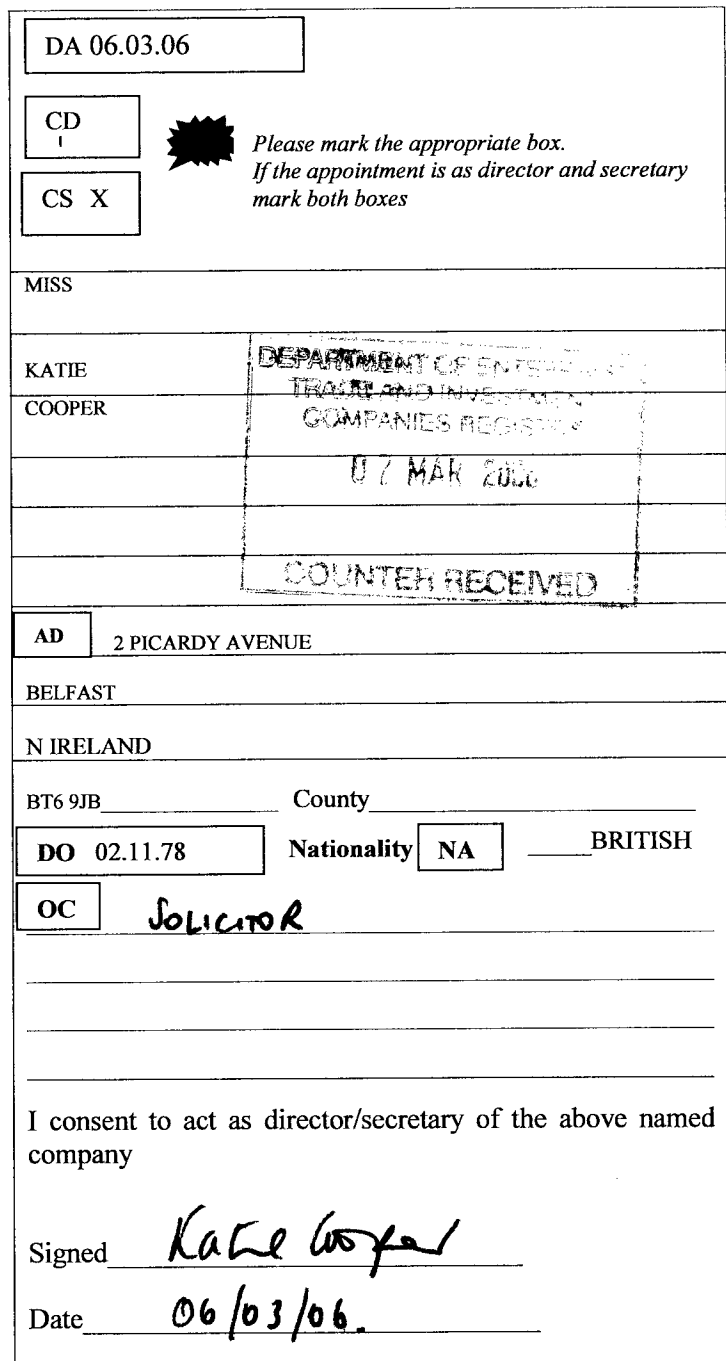 DA 06.03.06
CD
Please mark the appropriate box.
If the appointment is as director and secretary
CS X mark both boxes
MISS
KATIE
COOPER
DEPARTMENT OF
TRADE AND INVESTMENT
COMPANIES REGISTRY
MAR
COUNTER RECEIVED
AD 2 PICARDY AVENUE
BELFAST
N IRELAND
BT6 9JB County
DO 02.11.78 Nationality NA BRITISH
OC SOLICITOR
I consent to act as director/secretary of the above named
company
Signed Katie Cooper
Date 06/03/06.